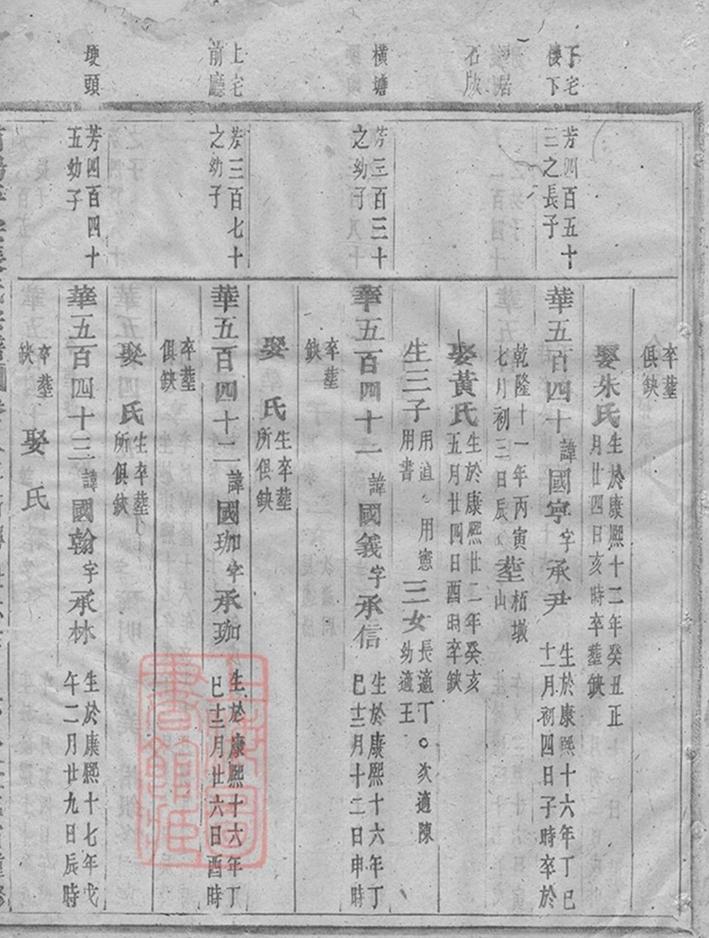 卒塟俱缺
娶朱氏生於康熙十二年癸丑正月廿四日亥時卒塟缺
下宅樓下
芳四百五十三之長子
華五百四十諱國寧字承尹生於康熙十六年丁巳十一月初四日子時卒於
乾隆十一年丙寅七月初三日辰塟栢墩山
娶黃氏生於康熙廿二年癸亥五月廿四日酉時卒缺
生三子用道用憲用書三女長適丁次適陳幼適王
橫塘
芳三百三十之幼子
華五百四十一諱國義字承信生於康熙十六年丁巳十二月十二日申時
卒塟缺
娶氏生卒塟所俱缺
上宅前廳
芳三百七十之幼子
華五百四十二諱國珈字承珈生於康熙十六年丁巳十二月廿六日酉時
卒塟俱缺
娶氏生卒塟所俱缺
墁頭
芳四百四十五幼子
華五百四十三諱國翰字承林生於康熙十七年戊午二月廿九日辰時
卒塟缺
娶氏